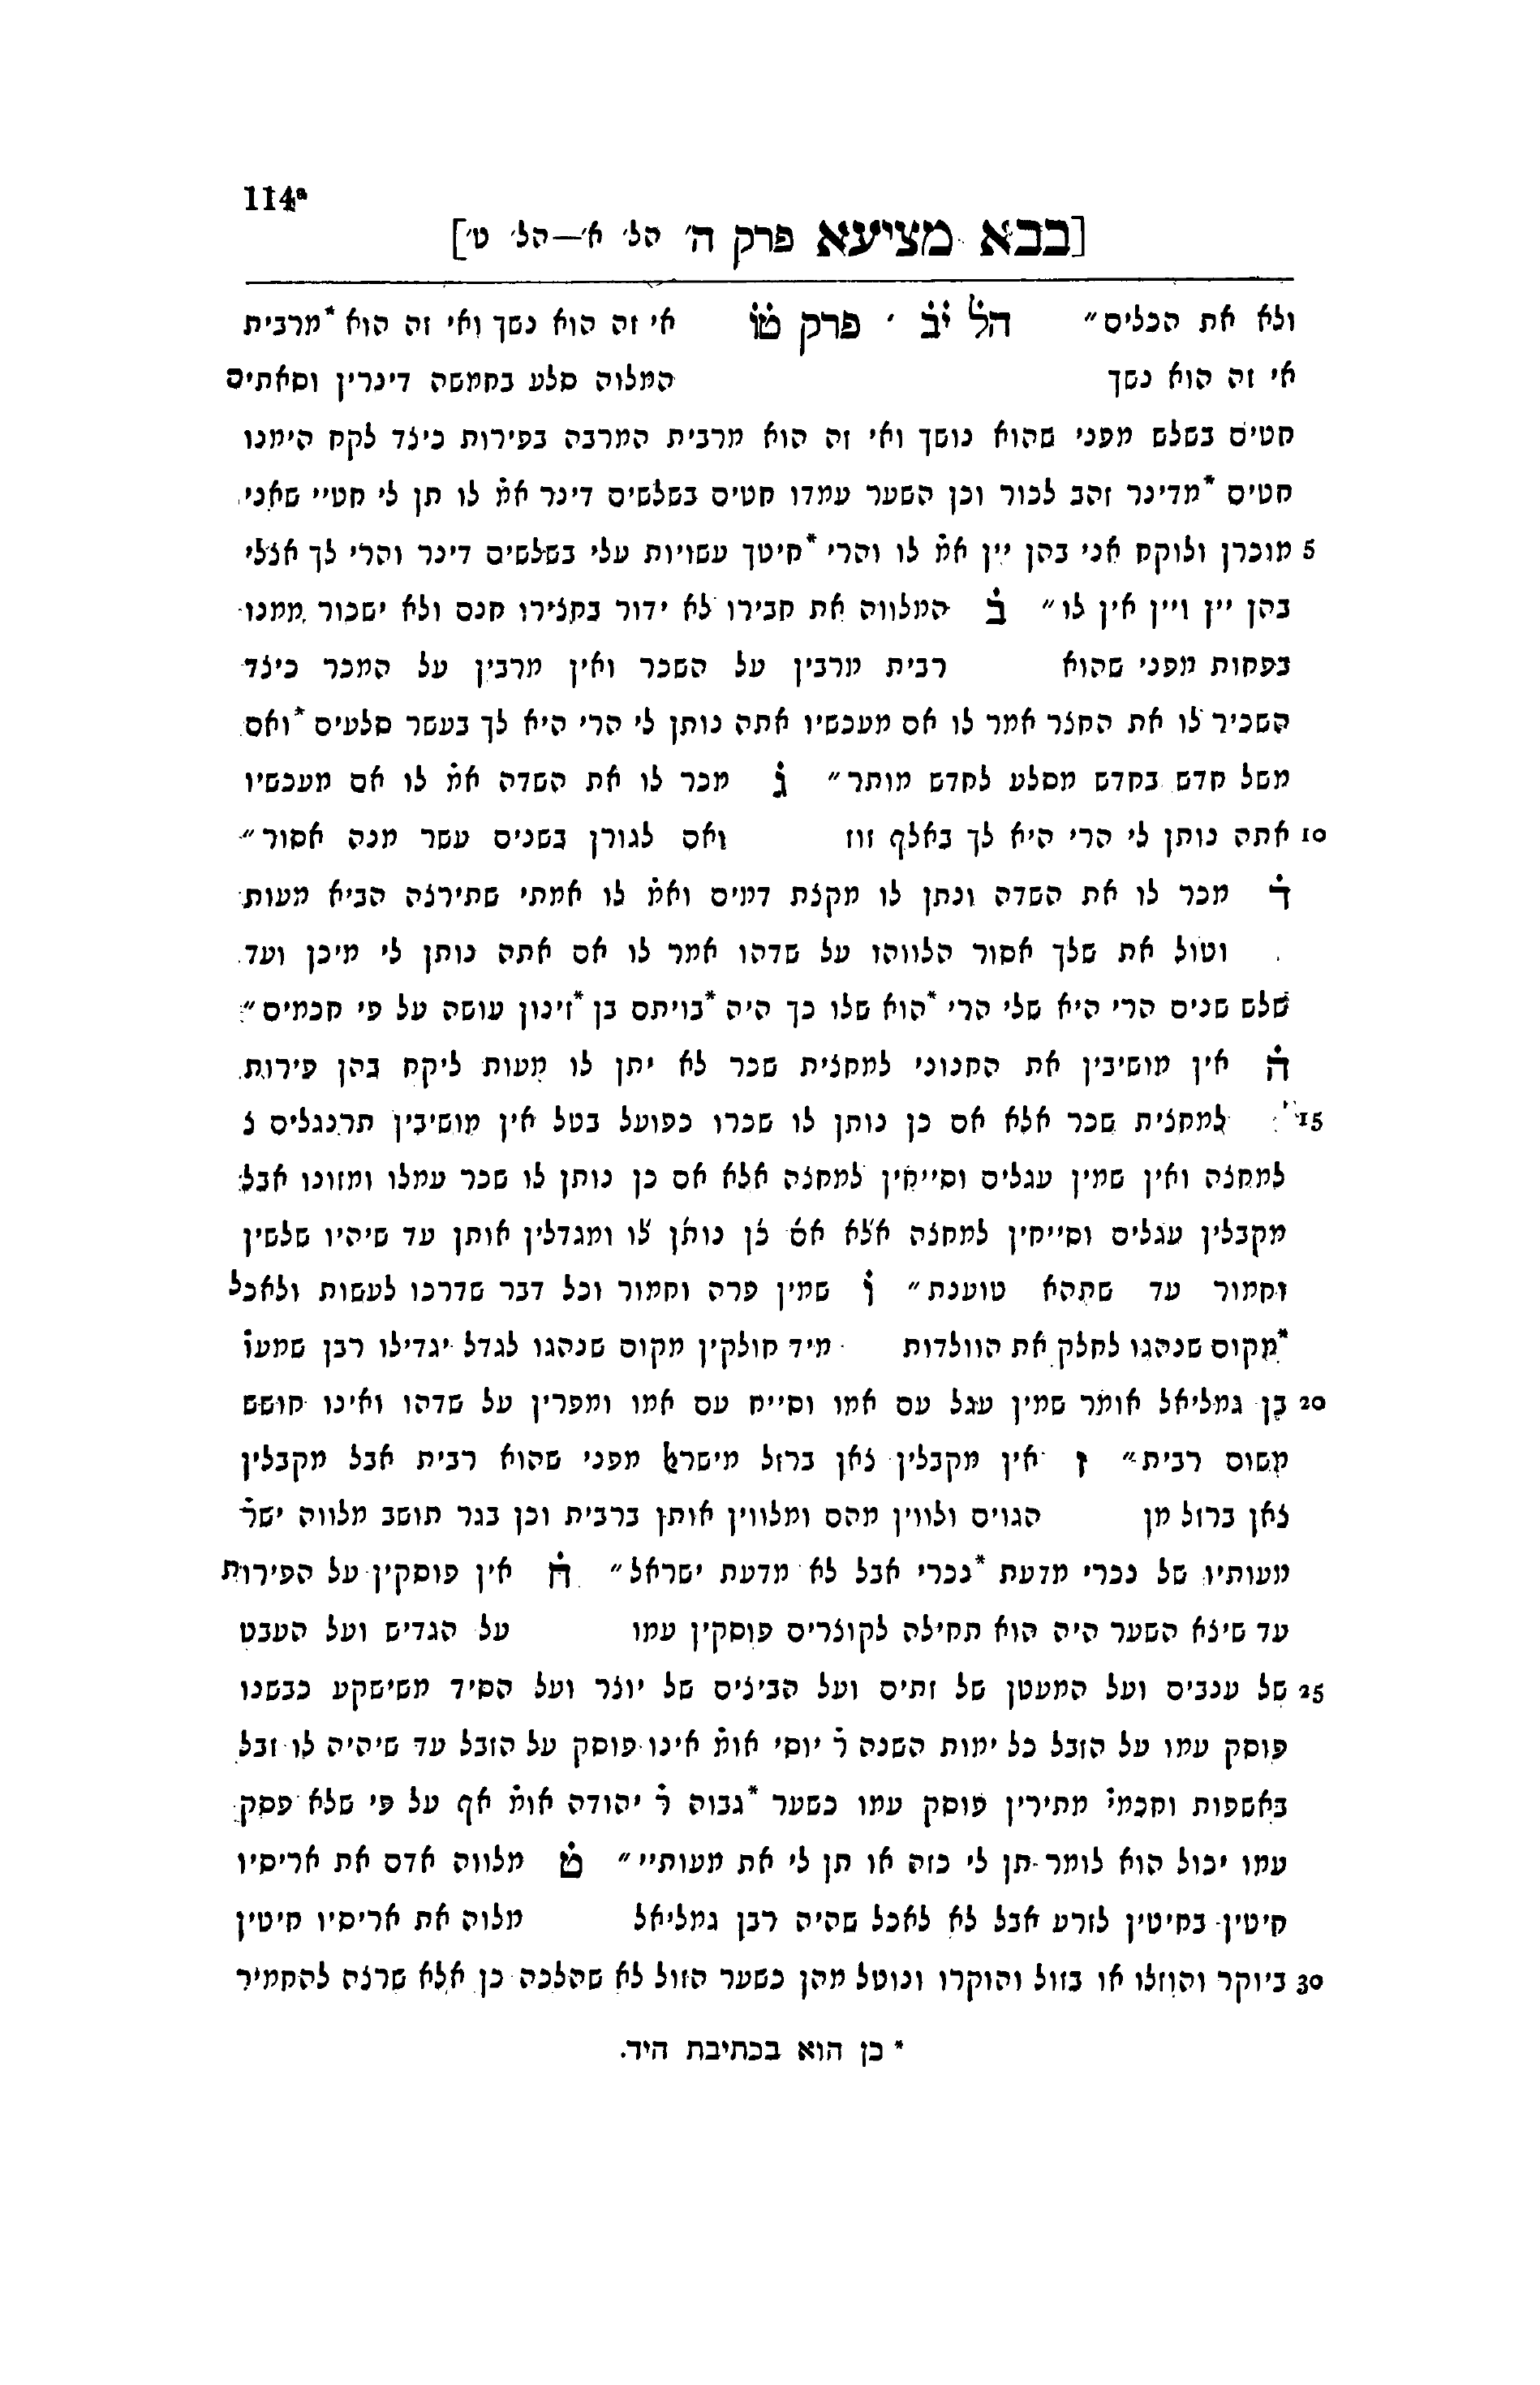 114a
[בבא מציעא פרק ה׳ הל׳ א׳—הל׳ ט׳]
ולא את הכלים״ הל̇ י̇ב̇ ׳ פרק ט̇ו̇ אי זה הוא נשך ואי זה הוא *מרבית
אי זה הוא נשך המלוה סלע בחמשה דינרין וסאתים
חטים בשלש מפני שהוא נושך ואי זה הוא מרבית המרבה בפירות כיצד לקח הימנו
חטים *מדינר זהב לכור וכן השער עמדו חטים בשלשים דינר אמ̇ לו תן לי חטיי שאני
5 מוכרן ולוקח אני בהן יין אמ̇ לו והרי *חיטך עשויות עלי בשלשים דינר והרי לך אצלי
בהן יין ויין אין לו״ ב̇ המלווה את חבירו לא ידור בחצירו חנם ולא ישכור ממנו
בפחות מפני שהוא רבית מרבין על השכר ואין מרבין על המכר כיצד
השכיר לו את החצר אמר לו אם מעכשיו אתה נותן לי הרי היא לך בעשר סלעים *ואם
משל חדש בחדש מסלע לחדש מותר״ ג̇ מכר לו את השדה אמ̇ לו אם מעכשיו
10 אתה נותן לי הרי היא לך באלף זוז ואם לגורן בשנים עשר מנה אסור״
ד̇ מכר לו את השדה ונתן לו מקצת דמים ואמ̇ לו אמתי שתירצה הביא מעות
וטול את שלך אסור הלווהו על שדהו אמר לו אם אתה נותן לי מיכן ועד
שלש שנים הרי היא שלי הרי *הוא שלו כך היה *בויתם בן *זינון עושה על פי חכמים״
ה̇ אין מושיבין את החנוני למחצית שכר לא יתן לו מעות ליקח בהן פירות
15 למחצית שכר אלא אם כן נותן לו שכרו כפועל בטל אין מושיבין תרנגלים צ
למחצה ואין שמין עגלים וסייחין למחצה אלא אם כן נותן לו שכר עמלו ומזונו אבל
מקבלין עגלים וסייחין למחצה אלא אם כן נותן לו ומגדלין אותן עד שיהיו שלשין
וחמור עד שתהא טוענת״ ו̇ שמין פרה וחמור וכל דבר שדרכו לעשות ולאכל
*מקום שנהגו לחלק את הוולדות מיד חולקין מקום שנהגו לגדל יגדילו רבן שמעו̇
20 בן גמליאל אומר שמין עגל עם אמו וסייח עם אמו ומפרין על שדהו ואינו חושש
משום רבית״ ז̇ אין מקבלין צאן ברזל מישרﭏ מפני שהוא רבית אבל מקבלין
צאן ברזל מן הגוים ולווין מהם ומלווין אותן ברבית וכן בגר תושב מלווה ישר̇
מעותיו של נכרי מדעת *נכרי אבל לא מדעת ישראל״ ח̇ אין פוסקין על הפירות
עד שיצא השער היה הוא תחילה לקוצרים פוסקין עמו על הגדיש ועל העבט
25 של ענבים ועל המעטן של זתים ועל הביצים של יוצר ועל הסיד משישקע כבשנו
פוסק עמו על הזבל כל ימות השנה ר̇ יוסי אומ̇ אינו פוסק על הזבל עד שיהיה לו זבל
באשפות וחכמי̇ מתירין פוסק עמו כשער *גבוה ר̇ יהודה אומ̇ אף על פי שלא פסק
עמו יכול הוא לומר תן לי כזה או תן לי את מעותיי״ ט̇ מלווה אדם את אריסיו
חיטין בחיטין לזרע אבל לא לאכל שהיה רבן גמליאל מלוה את אריסיו חיטין
30 ביוקר והוזלו או בזול והוקרו ונוטל מהן כשער הזול לא שהלכה כן אלא שרצה להחמיר
* כן הוא בכתיבת היד.